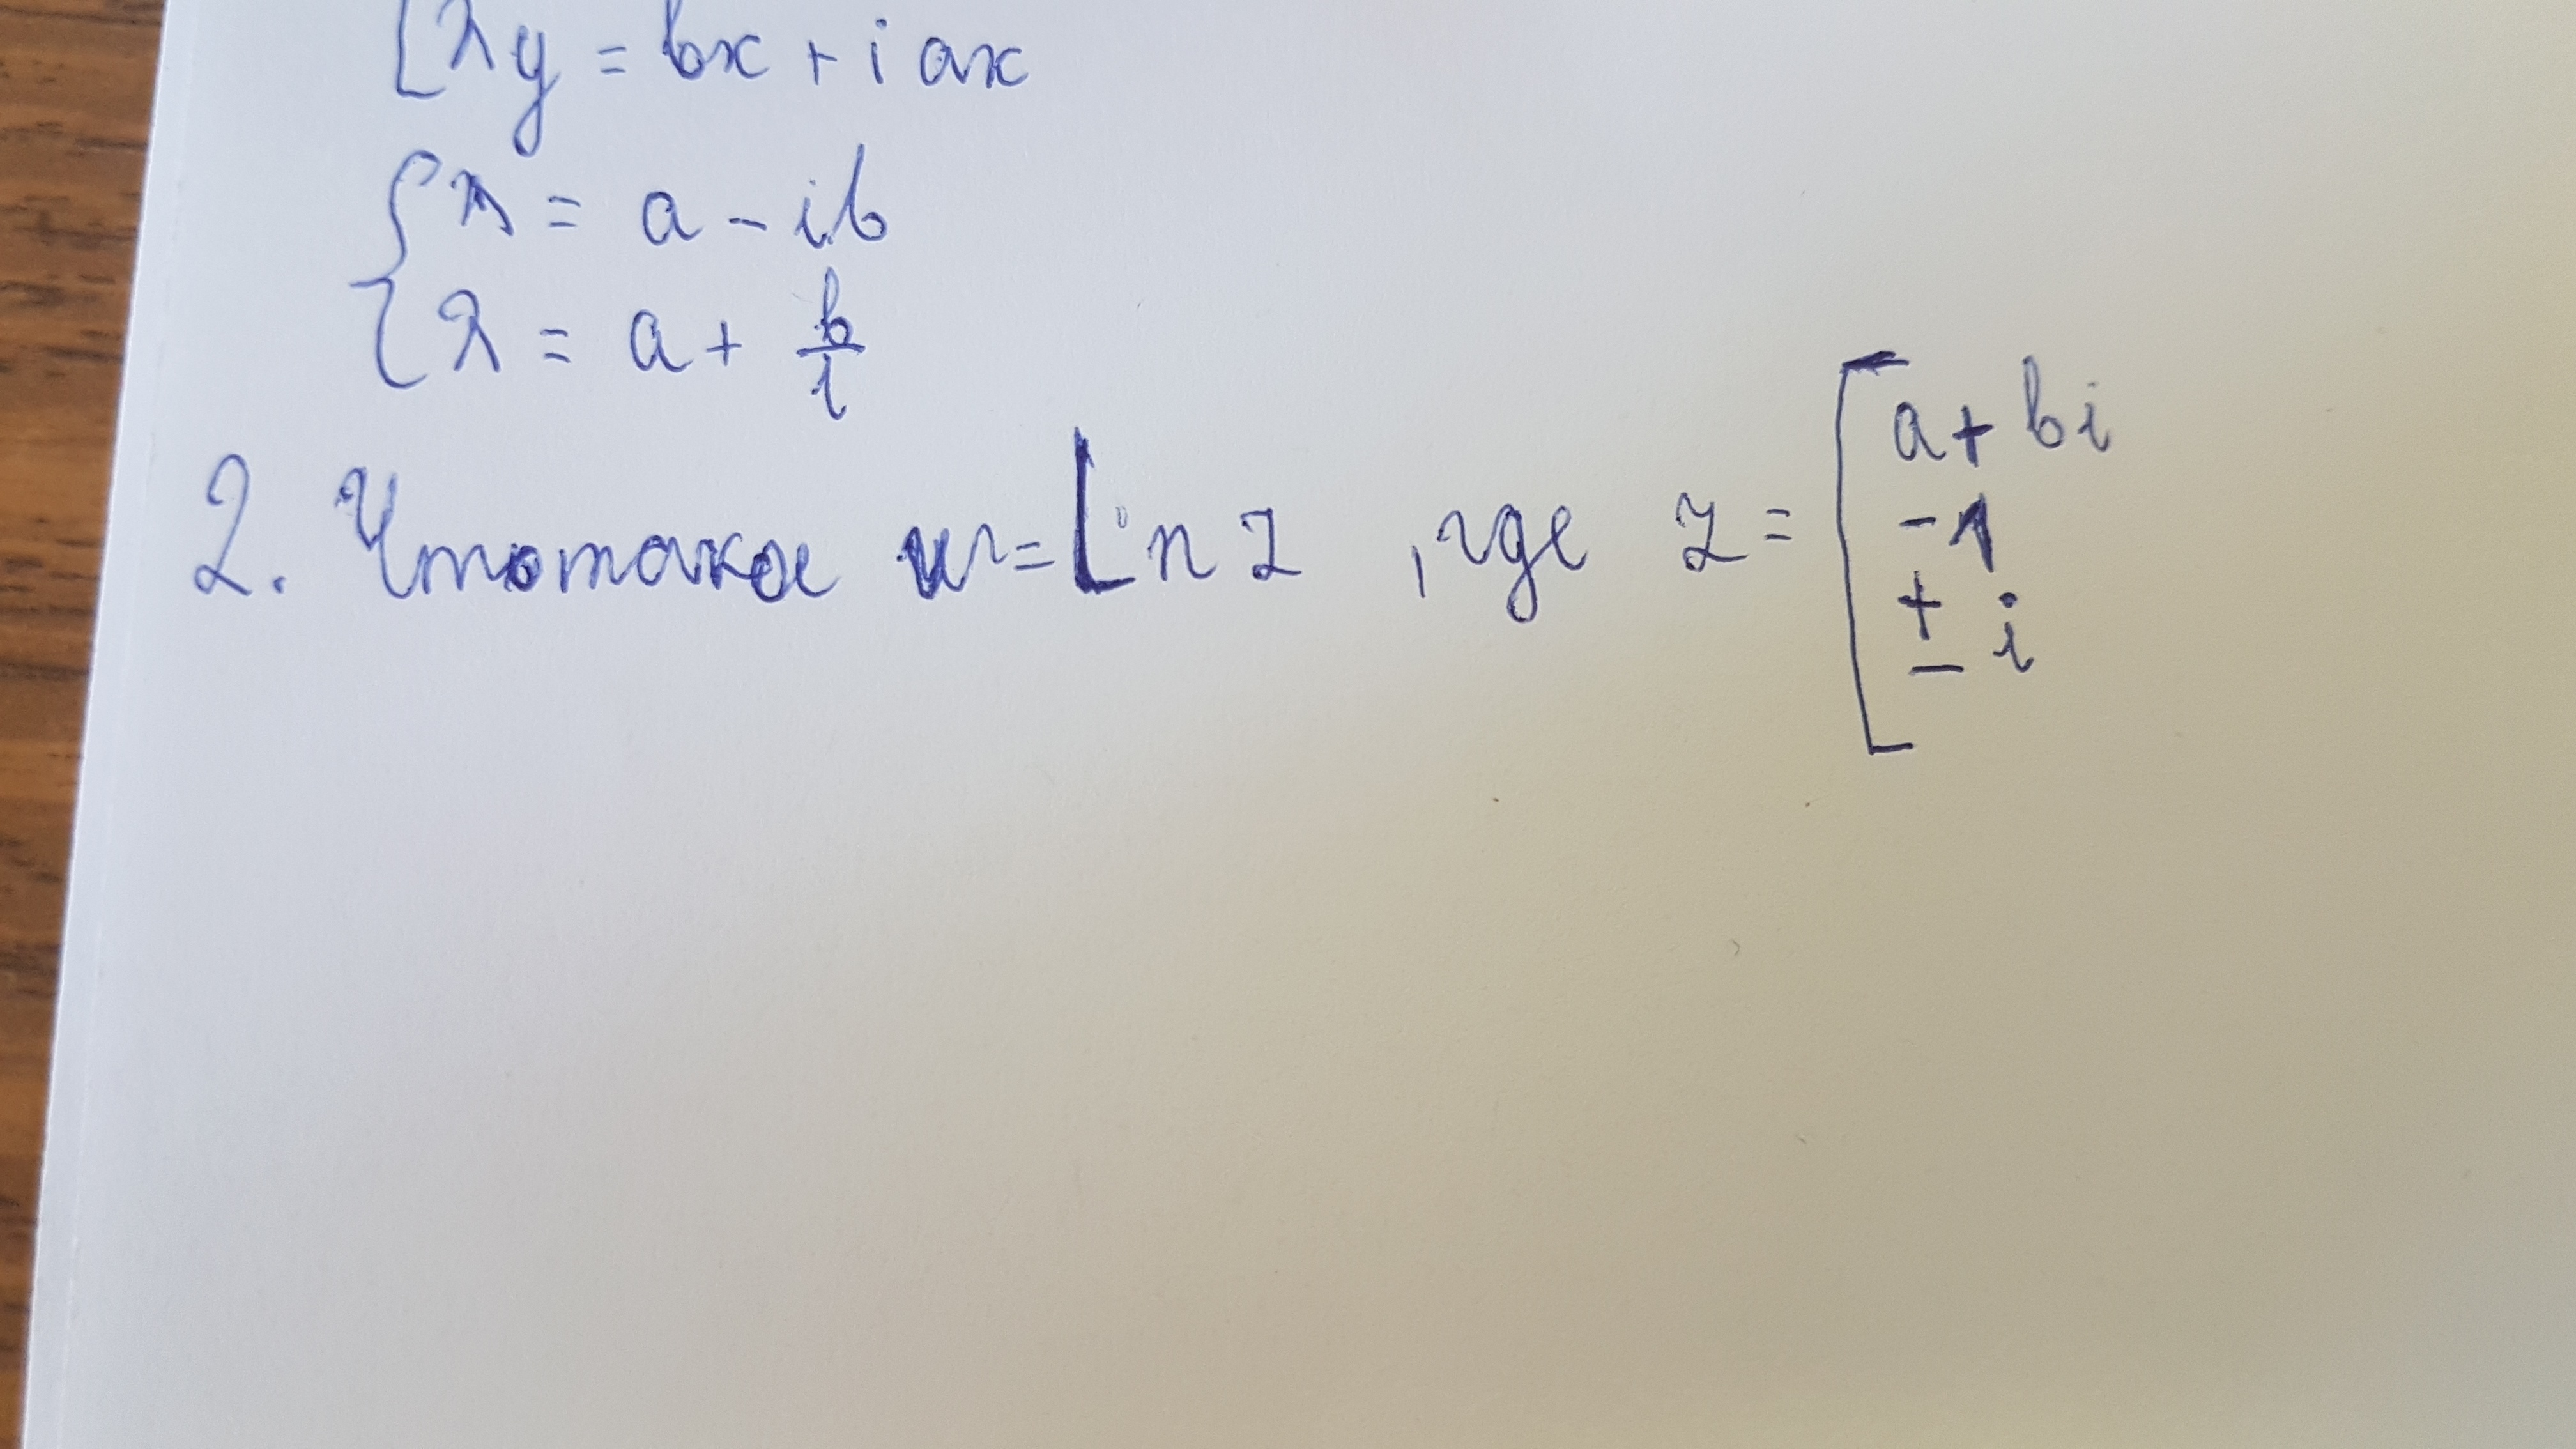 [λy = bx + i ax
{ λ = a - ib
λ = a + b/i
2. Что такое w = Ln z , где z = [ a + bi
-1
± i